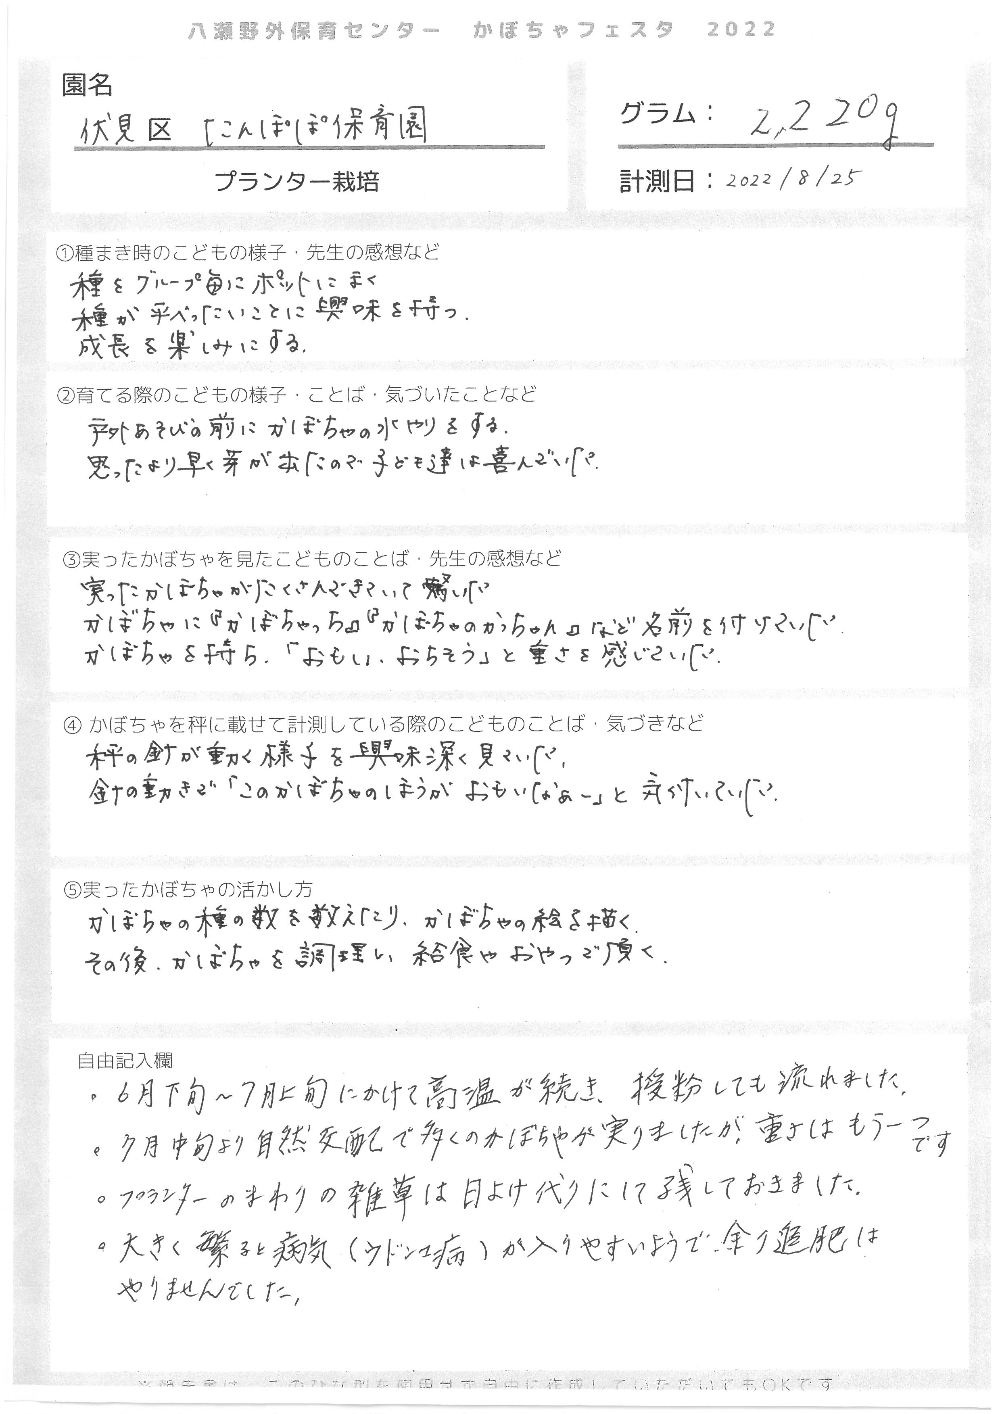 八瀬野外保育センター　かぼちゃフェスタ　2022
園名
伏見区 たんぽぽ保育園
プランター栽培
グラム： 2,220g
計測日：2022/8/25
①種まき時のこどもの様子・先生の感想など
種をグループ毎にポットにまく
種が平べったいことに興味を持つ.
成長を楽しみにする.
②育てる際のこどもの様子・ことば・気づいたことなど
戸外あそびの前にかぼちゃの水やりをする.
思ったより早く芽が出たので子ども達は喜んでいた.
③実ったかぼちゃを見たこどものことば・先生の感想など
実ったかぼちゃがたくさんできていて驚いた
かぼちゃに『かぼちゃっち』『かぼちゃのかっちゃん』など名前を付けていた.
かぼちゃを持ち.「おもい、おちそう」と重さを感じていた.
④ かぼちゃを秤に載せて計測している際のこどものことば・気づきなど
秤の針が動く様子を興味深く見ていた.
針の動きで「このかぼちゃのほうがおもいなぁー」と気付いていた.
⑤実ったかぼちゃの活かし方
かぼちゃの種の数を数えたり、かぼちゃの絵を描く.
その後.かぼちゃを調理し 給食やおやつで頂く.
自由記入欄
・6月下旬～7月上旬にかけて高温が続き、授粉しても流れました.
・7月中旬より自然交配で多くのかぼちゃが実りましたが、重さはもう一つです
・プランターのまわりの雑草は日よけ代りにして残しておきました.
・大きく繁ると病気（ウドンコ病）が入りやすいようで、余り追肥は
やりませんでした.